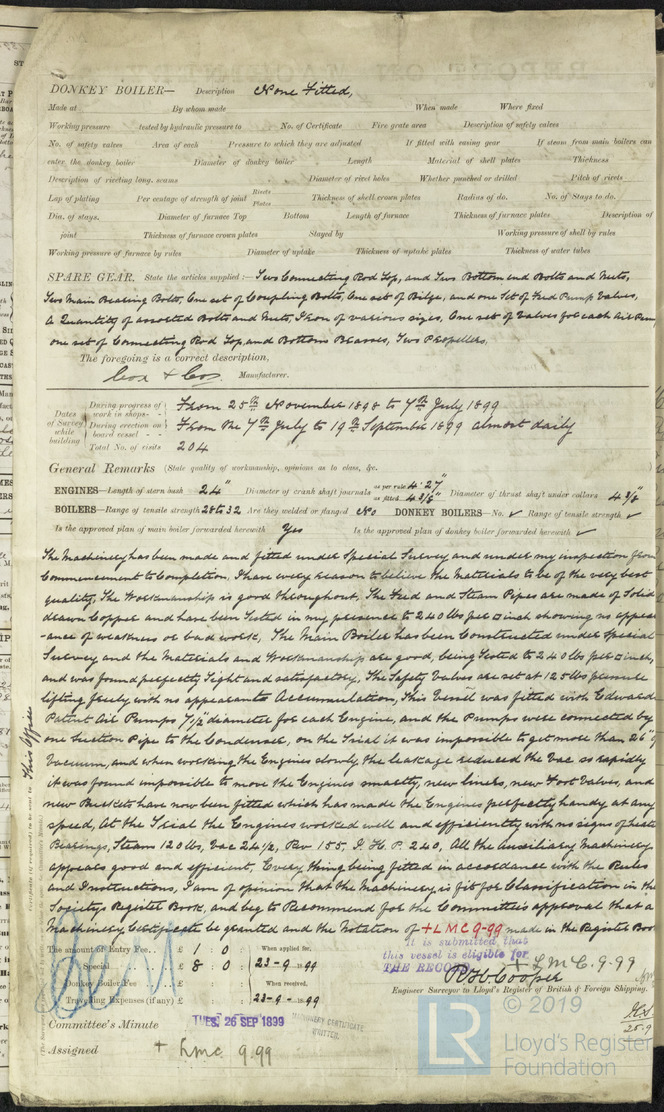 DONKEY BOILER— Description None Fitted,
Made at By whom made When made Where fixed
Working pressure tested by hydraulic pressure to No. of Certificate Fire grate area Description of safety valves
No. of safety valves Area of each Pressure to which they are adjusted If fitted with easing gear If steam from main boilers can
enter the donkey boiler Diameter of donkey boiler Length Material of shell plates Thickness
Description of riveting long. seams Diameter of rivet holes Whether punched or drilled Pitch of rivets
Lap of plating Per centage of strength of joint Rivets Plates Thickness of shell crown plates Radius of do. No. of Stays to do.
Dia. of stays. Diameter of furnace Top Bottom Length of furnace Thickness of furnace plates Description of
joint Thickness of furnace crown plates Stayed by Working pressure of shell by rules
Working pressure of furnace by rules Diameter of uptake Thickness of uptake plates Thickness of water tubes
SPARE GEAR. State the articles supplied:— Two Connecting Rod Top, and Two Bottom end Bolts and Nuts,
Two Main Bearing Bolts, One set of Coupling Bolts, One set of Bilge, and one Set of Feed Pump Valves,
A Quantity of assorted Bolts and Nuts, Iron of various sizes, One set of Valves for each Air Pump,
one set of Connecting Rod Top, and Bottom Brasses, Two Propellers,
The foregoing is a correct description,
Cox & Co Manufacturer.
Dates of Survey while building
During progress of work in shops - - From 25th November 1898 to 7th July 1899
During erection on board vessel - - From the 7th July to 19th September 1899 almost daily
Total No. of visits 204
General Remarks (State quality of workmanship, opinions as to class, &c.
ENGINES—Length of stern bush 24" Diameter of crank shaft journals as per rule 4.27" as fitted 4 3/8" Diameter of thrust shaft under collars 4 3/8"
BOILERS—Range of tensile strength 28 to 32 Are they welded or flanged No DONKEY BOILERS—No. ✓ Range of tensile strength ✓
Is the approved plan of main boiler forwarded herewith Yes Is the approved plan of donkey boiler forwarded herewith ✓
The Machinery has been made and fitted under Special Survey and under my inspection from
Commencement to Completion, I have every reason to believe the Materials to be of the very best
quality, The Workmanship is good throughout, The Feed and Steam Pipes are made of Solid
drawn Copper and have been Tested in my presence to 240 lbs per □ inch showing no appear
-ance of weakness or bad work, The Main Boiler has been Constructed under Special
Survey and the Materials and Workmanship are good, being Tested to 240 lbs per □ inch,
and was found perfectly Tight and satisfactory, The Safety Valves are set at 125 lbs pressure
lifting freely with no appearance Accumulation, This Vessel was fitted with Edwards
Patent Air Pumps 7½" diameter for each Engine, and the Pumps were connected by
one Suction Pipe to the Condenser, on the Trial it was impossible to get more than 26" of
Vacuum, and when working the Engines slowly the leakage reduced the Vac so rapidly
it was found impossible to move the Engines smartly, new liners, new Foot Valves, and
new Buckets have now been fitted which has made the Engines perfectly handy at any
speed, At the Trial the Engines worked well and efficiently with no signs of heated
Bearings, Steam 120 lbs, Vac 24½, Rev 155, I. H. P. 240, All the Auxiliary Machinery
appears good and efficient, Every thing being fitted in accordance with the Rules
and Instructions, I am of opinion that the Machinery is fit for Classification in the
Society's Register Book, and beg to Recommend for the Committee's approval that a
Machinery Certificate be granted and the Notation of + LMC 9-99 made in the Register Book
It is submitted that
this vessel is eligible for
THE RECORD + LMC. 9-99
The amount of Entry Fee.. £ 1 : 0 : When applied for,
Special £ 8 : 0 : 23-9-99
Donkey Boiler Fee £ : : When received,
Travelling Expenses (if any) £ : : 23-9-99
R. H. Cooper
Engineer Surveyor to Lloyd's Register of British & Foreign Shipping.
25.9
Committee's Minute TUES, 26 SEP 1899
MACHINERY CERTIFICATE
WRITTEN.
Assigned + LMC 9.99
This Office
© 2019
LR
Lloyd's Register
Foundation